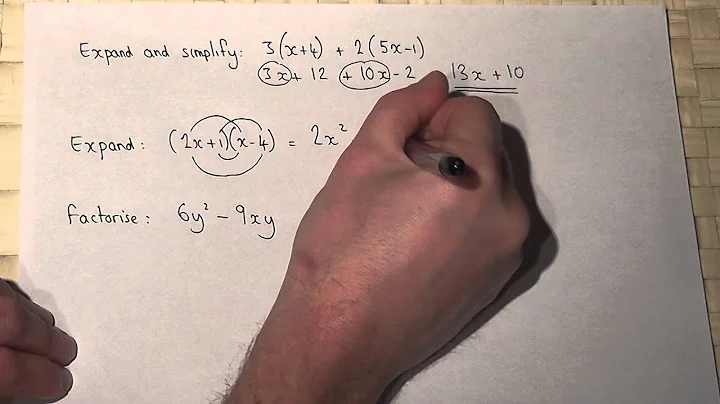 Expand and simplify: 3(x+4) + 2(5x-1)
3x + 12 + 10x - 2 13x + 10
Expand: (2x+1)(x-4) = 2x²
Factorise: 6y² - 9xy